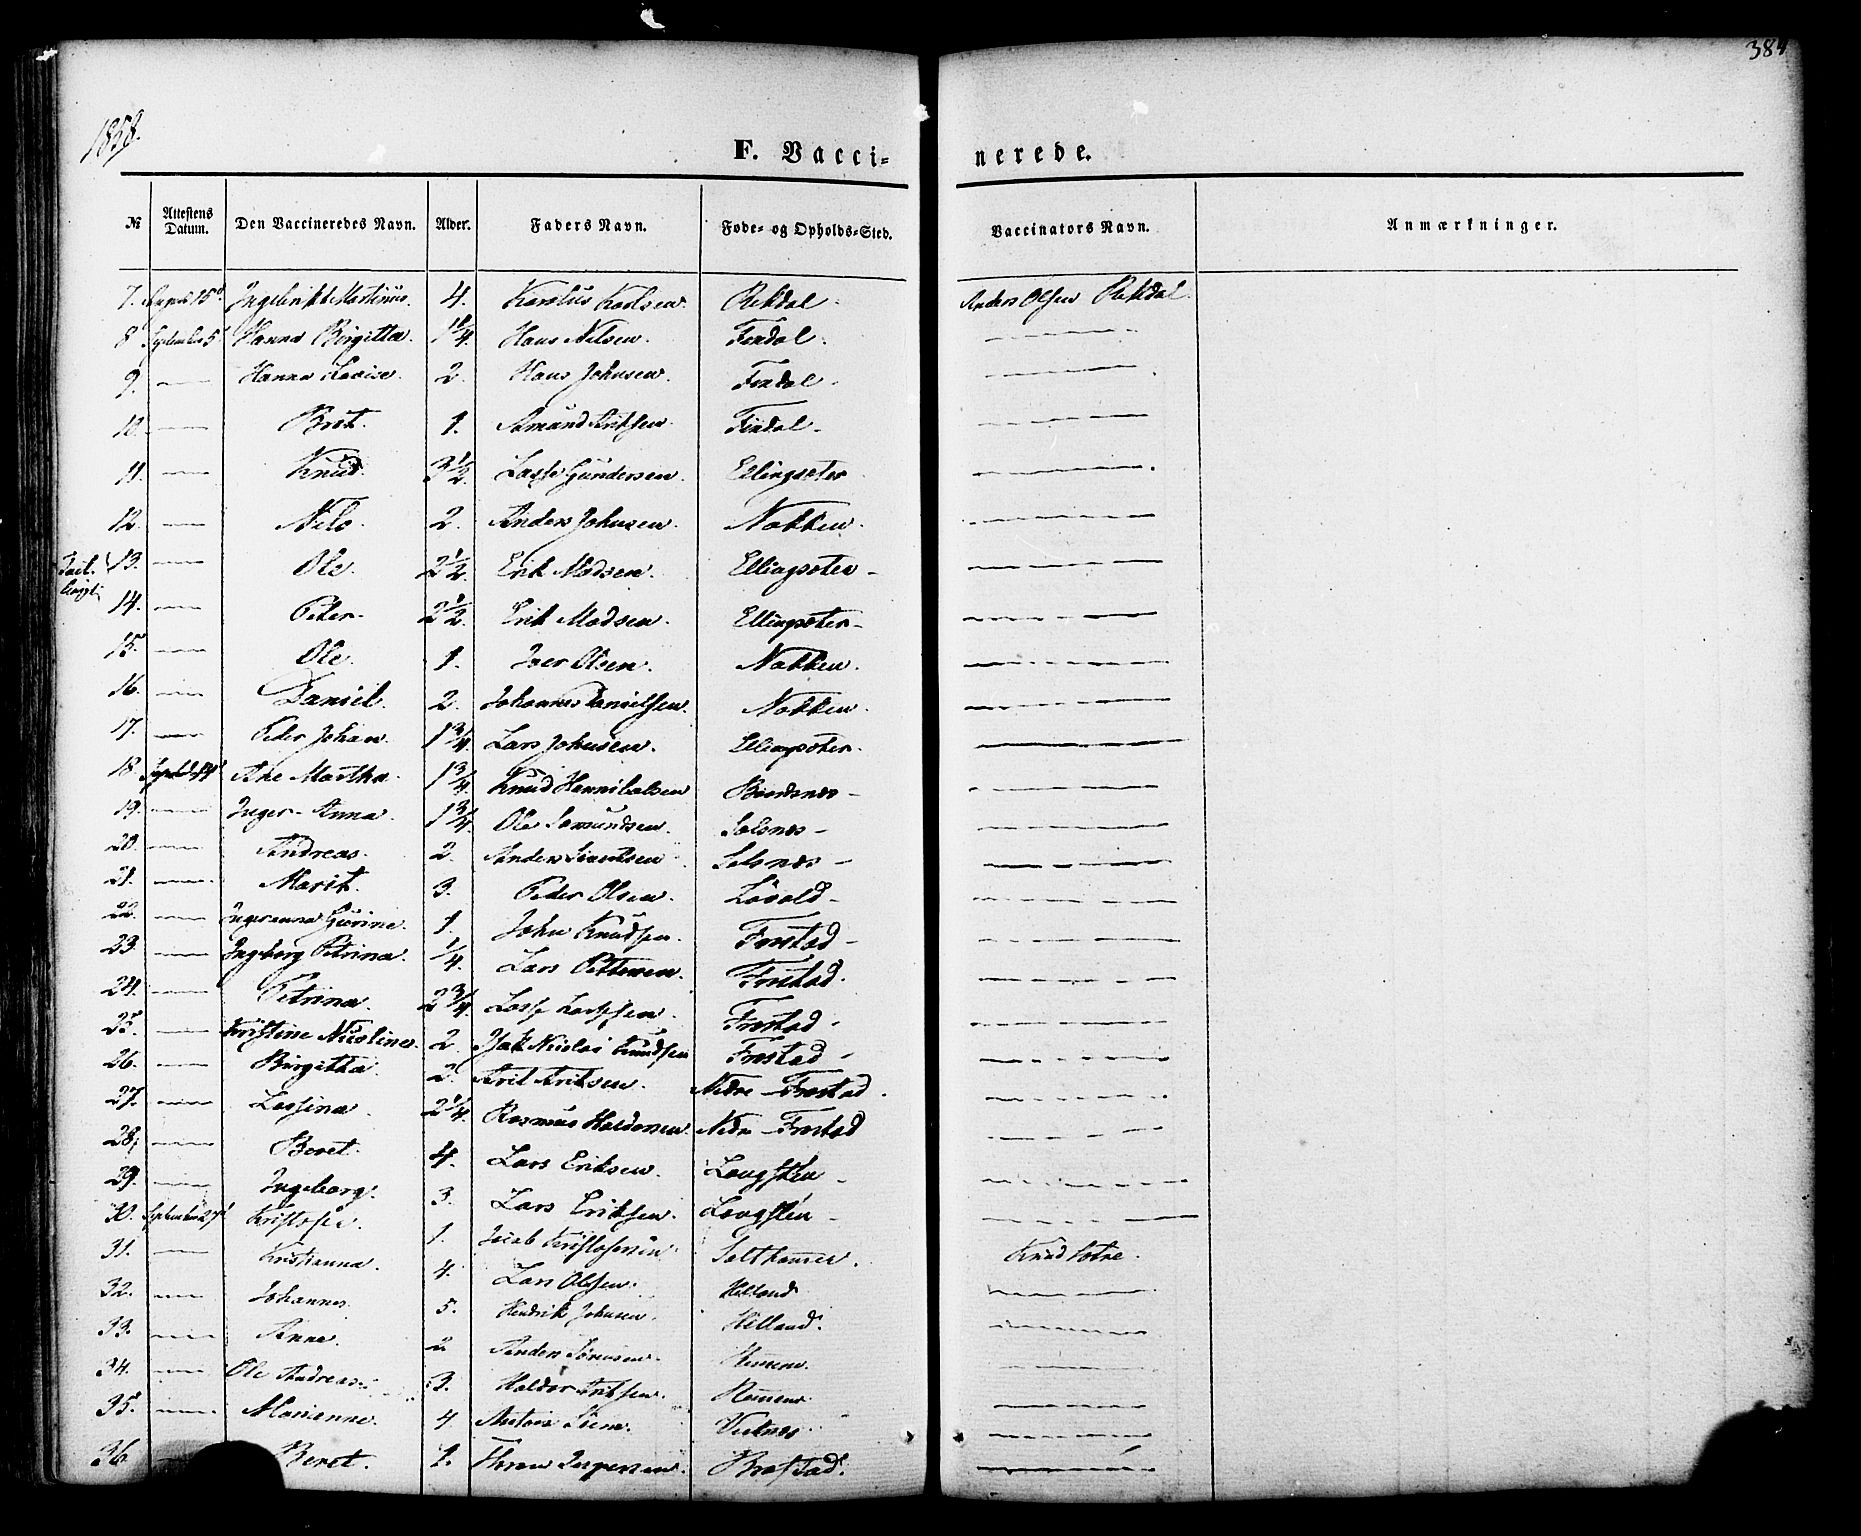 384
1858.
F. Vaccinerede.
№ Attestens Datum. Den Vaccineredes Navn. Alder. Faders Navn. Føde- og Opholds-Sted. Vaccinators Navn. Anmærkninger.
7. August 15de Ingebrikt Martinus. 4. Karolus Karlsen. Rekdal. Anders Olsen Rekdal.
8 September 5te Hanna Birgitta. 1 1/4. Hans Nilsen. Tindal.
9. — Hanna Lovise. 2. Hans Johnsen. Tindal.
10. — Brit. 1. Amund Eriksen. Tindal.
11. — Knud. 3 1/2. Lasse Gundersen. Ellingsæter
12. — Nils. 2. Anders Johnsen. Nakken.
13. — Ole. 2 1/2. Erik Madsen. Ellingsæter
14. — Peter. 2 1/2. Erik Madsen. Ellingsæter
15. — Ole. 1. Iver Olsen. Nakken.
16. — Daniel. 2. Johannes Danielsen. Nakken.
17. — Peder Johan. 1 3/4. Lars Johnsen. Ellingsæter.
18 Ane Martha. 1 3/4. Knud Hannibalsen
19. — Inger Anna. 1 3/4. Ole Samundsen. Solsnes
20. — Andreas. 2. Anders Solsnes
21. — Marit. 3. Peder Olsen. Lövold
22. — Ingeranna Gurine. 1. John Knudsen. Frostad
23. — Ingeborg Petrina. 1/4. Lars Pettersen. Frostad.
24. — Petrina. 2 3/4. Lasse Lassesen. Frostad
25. — Kristine Nicoline. 2 Isak Nicolai Knudsen Frostad
26. — Birgitha. 2. Aril Ariksen. Nedre Frostad.
27. — Lassina. 2 1/4. Rasmus Haldorsen. Nedre Frostad
28. — Beret. 4. Lars Eriksen. Langsten
29. — Ingeborg. 3. Lars Eriksen. Langsten
30. September 27de Kristofer. 1. Jacob Kristofersen Salthamer. Knud Sotne.
31. — Kristianna. 4. Lars Olsen. Helland
32. — Johannes. 5. Hendrik Johnsen. Helland.
33. — Anne. 2 Anders Sörensen.
34. — Ole Andreas. 3. Haldor Eriksen.
35. — Marienne. 4. Viknes
36. Beret. 1. Brastad.